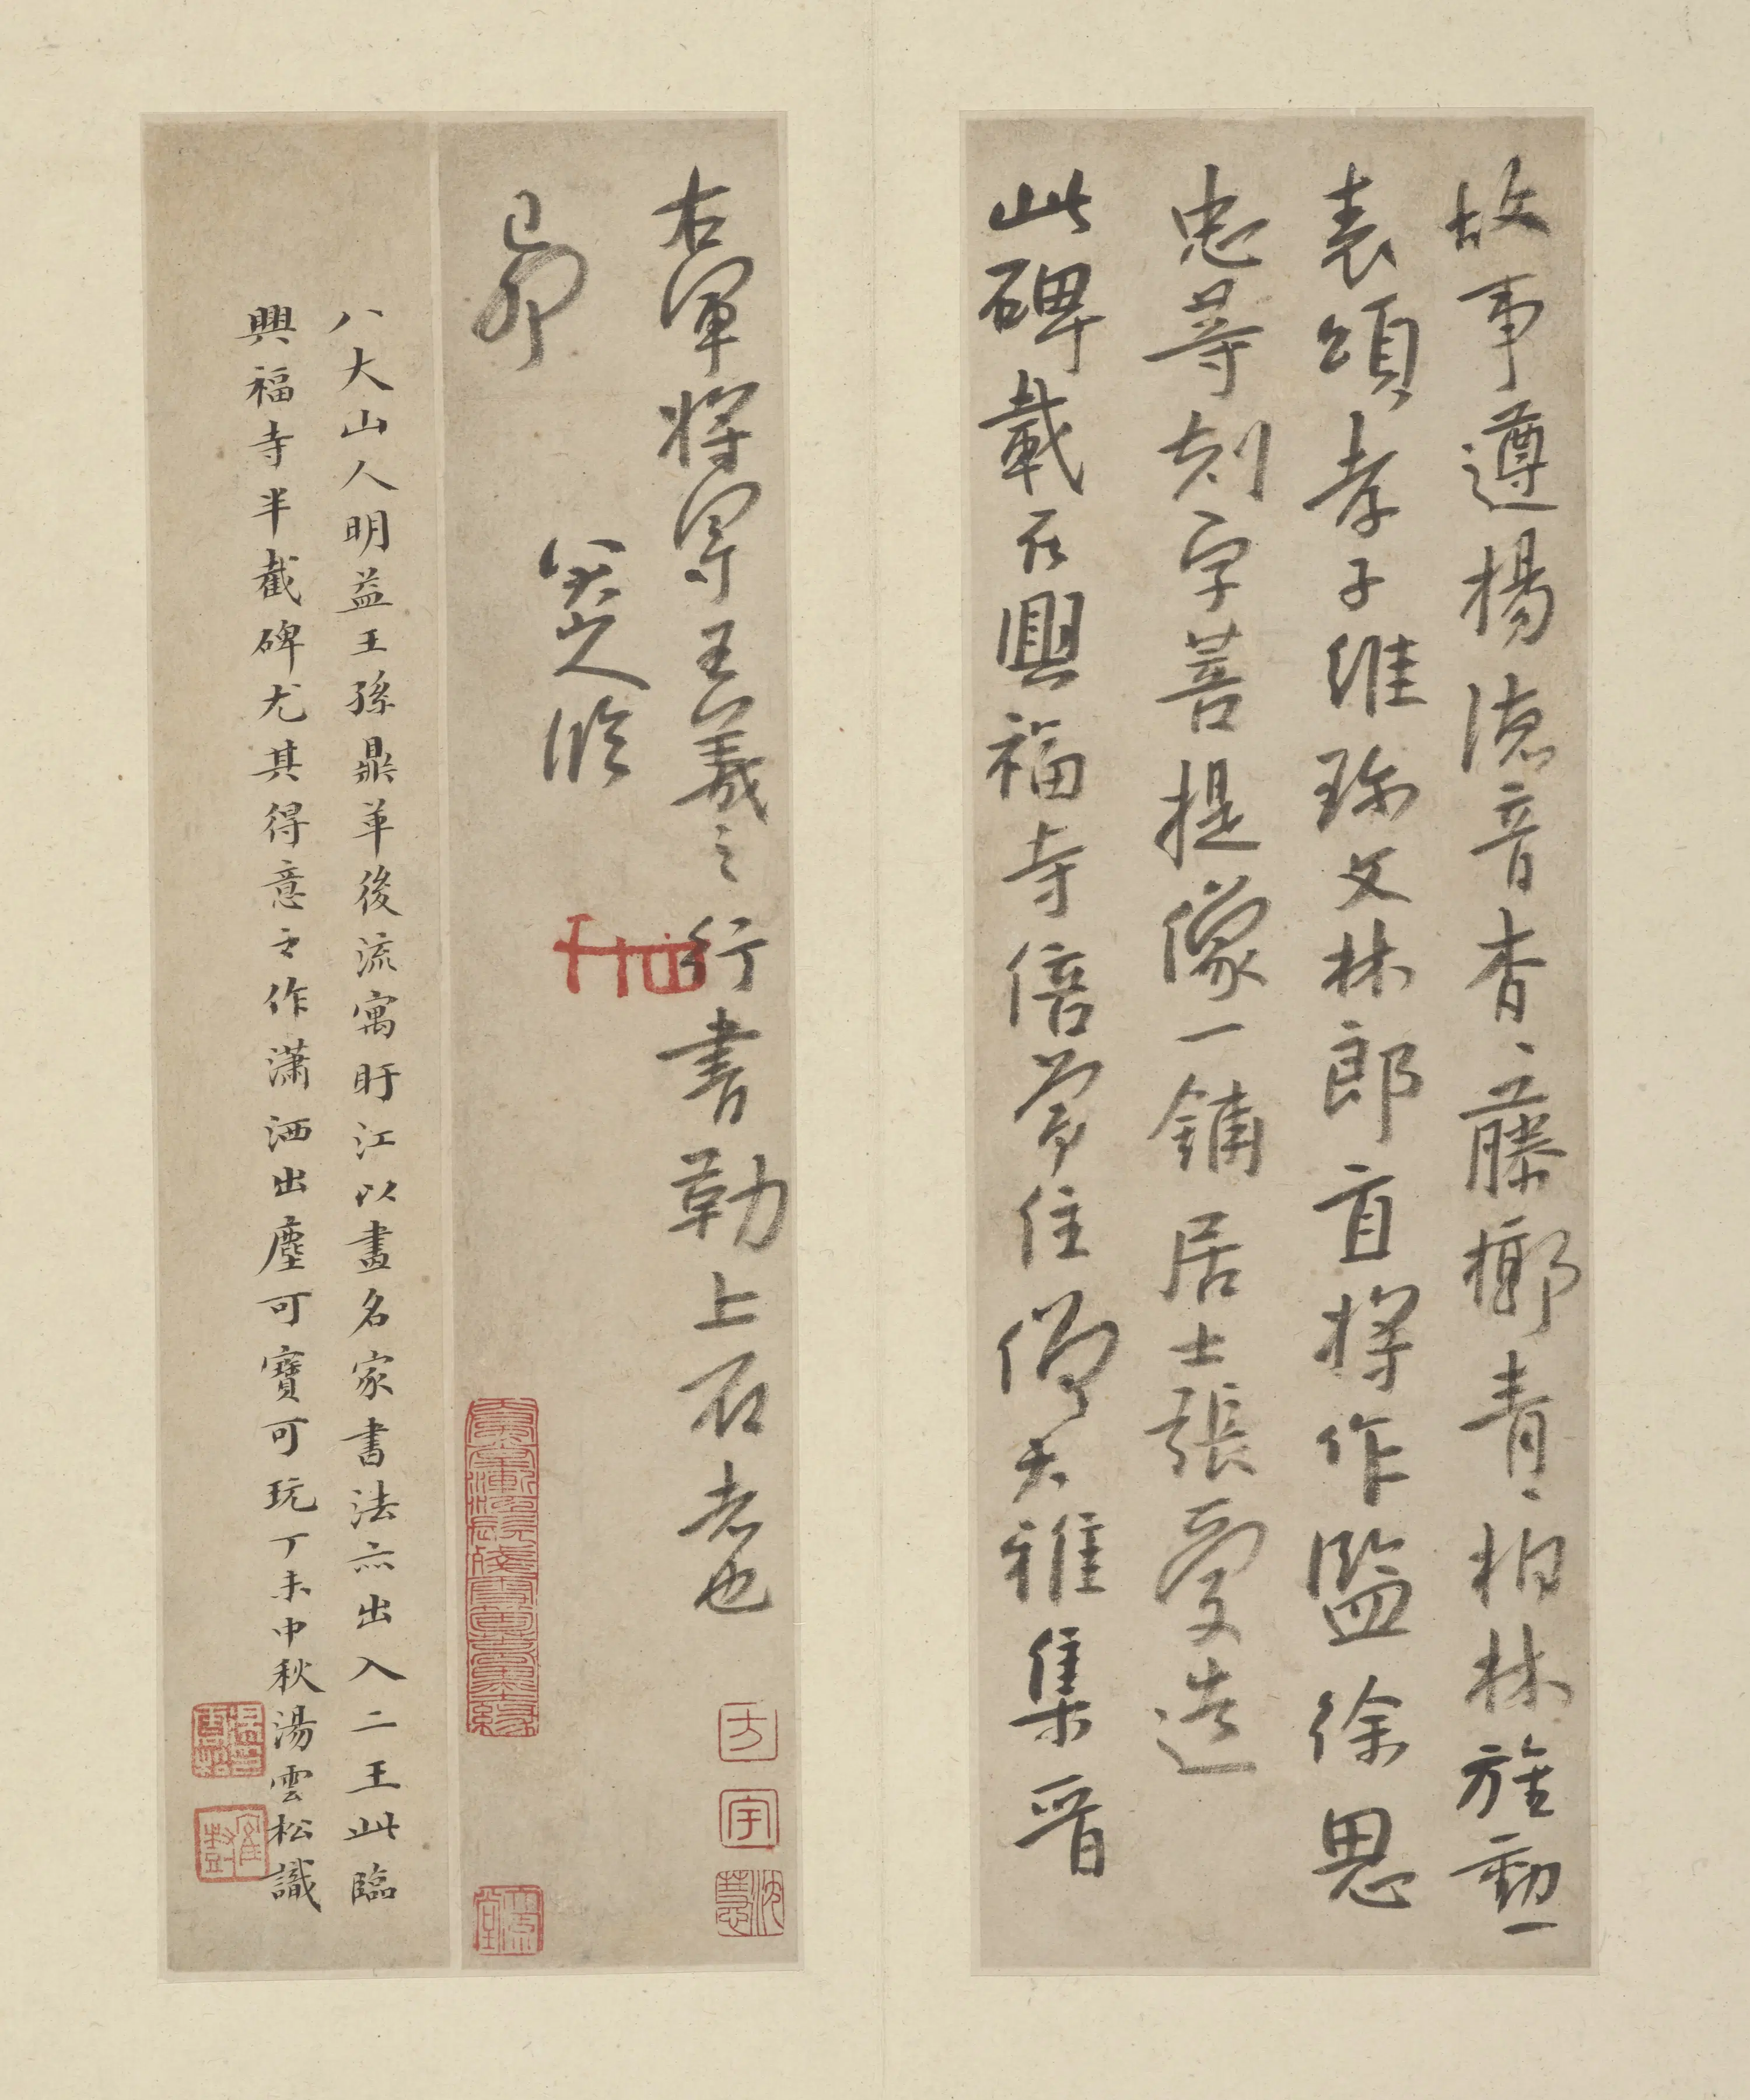 故事遵揚德音杳、藤槨青、柏林旌勳一
表頌孝子維珎文林郎直將作監徐思
忠等刻字菩提像一鋪居士張愛造
此碑載在興福寺倍常住僧大雅集晉
右軍將軍王羲之行書勒上石者也
己卯
八大山人臨
八大山人明益王孫鼎革後流寓盱江以畫名家書法亦出入二王此臨
興福寺半截碑尤其得意之作瀟洒出塵可寶可玩丁未中秋湯雲松識
方
宇